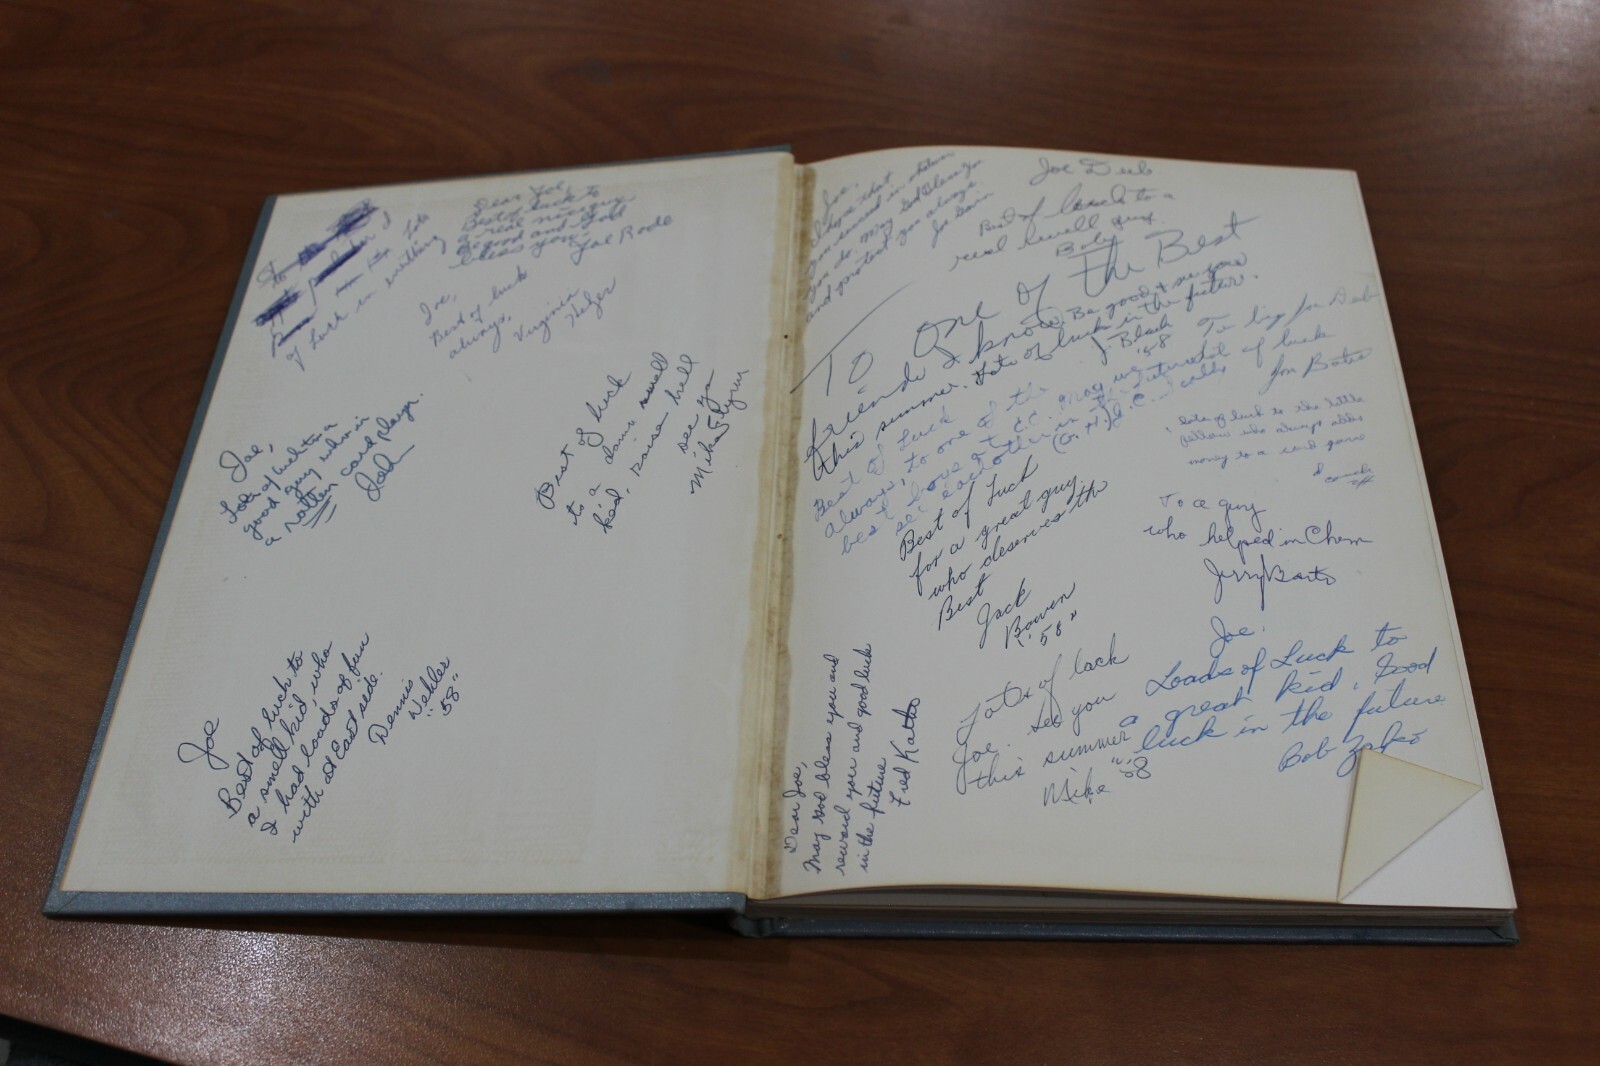 Dear Joe,
Best of luck to
a real nice guy
Be good and God
bless you.
Joe Rode
to
of luck in everything
Joe,
Best of luck
always,
Virginia
Joe,
Lots of luck to a
good guy who is
a rotten card player.
Best of luck
to a damn swell
kid, Raise hell
see ya
Mike
Joe
Best of luck to
a smell kid, who
I had loads of fun
with at East side.
Dennis
"58"
Joe,
I hope that
you succeed in
you do. May God Bless you
and protect you always.
Joe
Joe Deeb
Best of luck to a
real swell guy.
Bob
To One of the Best
Friends I know. Be good & see you
this summer. Lots of luck in the future.
J. Black
'58
of luck
Jon Bates
Best of Luck
always, to one of the
best
see each other in the
lots of luck to the little
fellow who always
money to a card game
Best of Luck
for a great guy
who deserves the
Best
Jack
Bowen
"58"
To a guy
who helped in Chem
Jerry Barto
Joe.
Loads of Luck to
a great kid, Good
luck in the future
Bob
Lots of luck
Joe. See you
this summer
Mike "58
Dear Joe,
May God bless you and
reward you and good luck
in the future
Fred